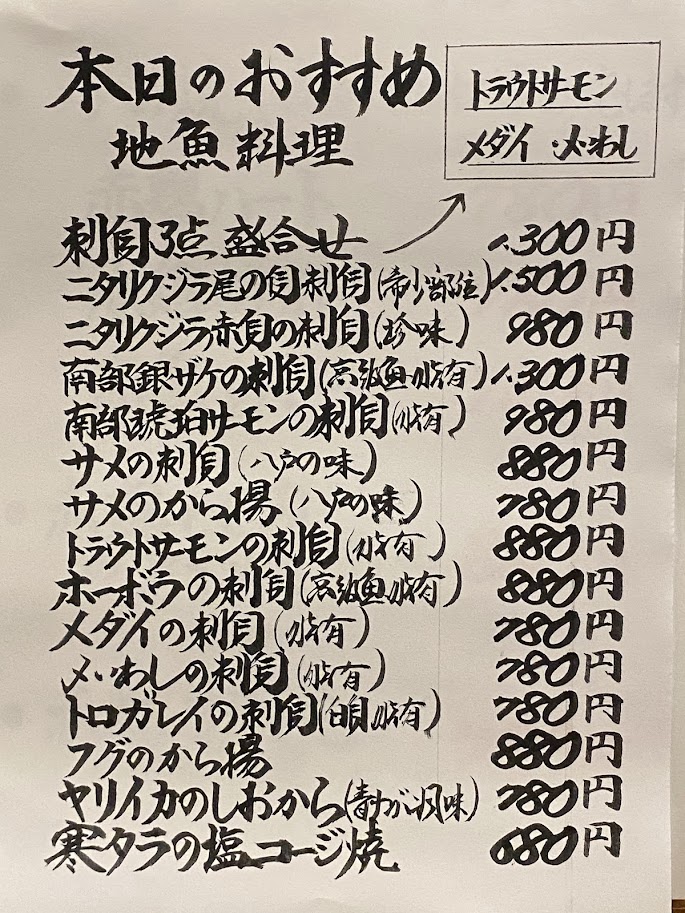 本日のおすすめ
地魚料理
トラウトサーモン
メダイ・〆いわし
刺身3点盛合せ 1.300円
ニタリクジラ尾の身刺身(希少部位) 1.500円
ニタリクジラ赤身の刺身(珍味) 980円
南部銀ザケの刺身(高級魚脂有) 1.300円
南部琥珀サーモンの刺身(脂有) 980円
サメの刺身(八戸の味) 880円
サメのから揚(八戸の味) 780円
トラウトサーモンの刺身(脂有) 880円
ホーボーの刺身(高級魚脂有) 880円
メダイの刺身(脂有) 780円
〆いわしの刺身(脂有) 780円
トロガレイの刺身(白身脂有) 780円
フグのから揚 880円
ヤリイカのしおから(青カビ風味) 780円
寒タラの塩コージ焼 680円